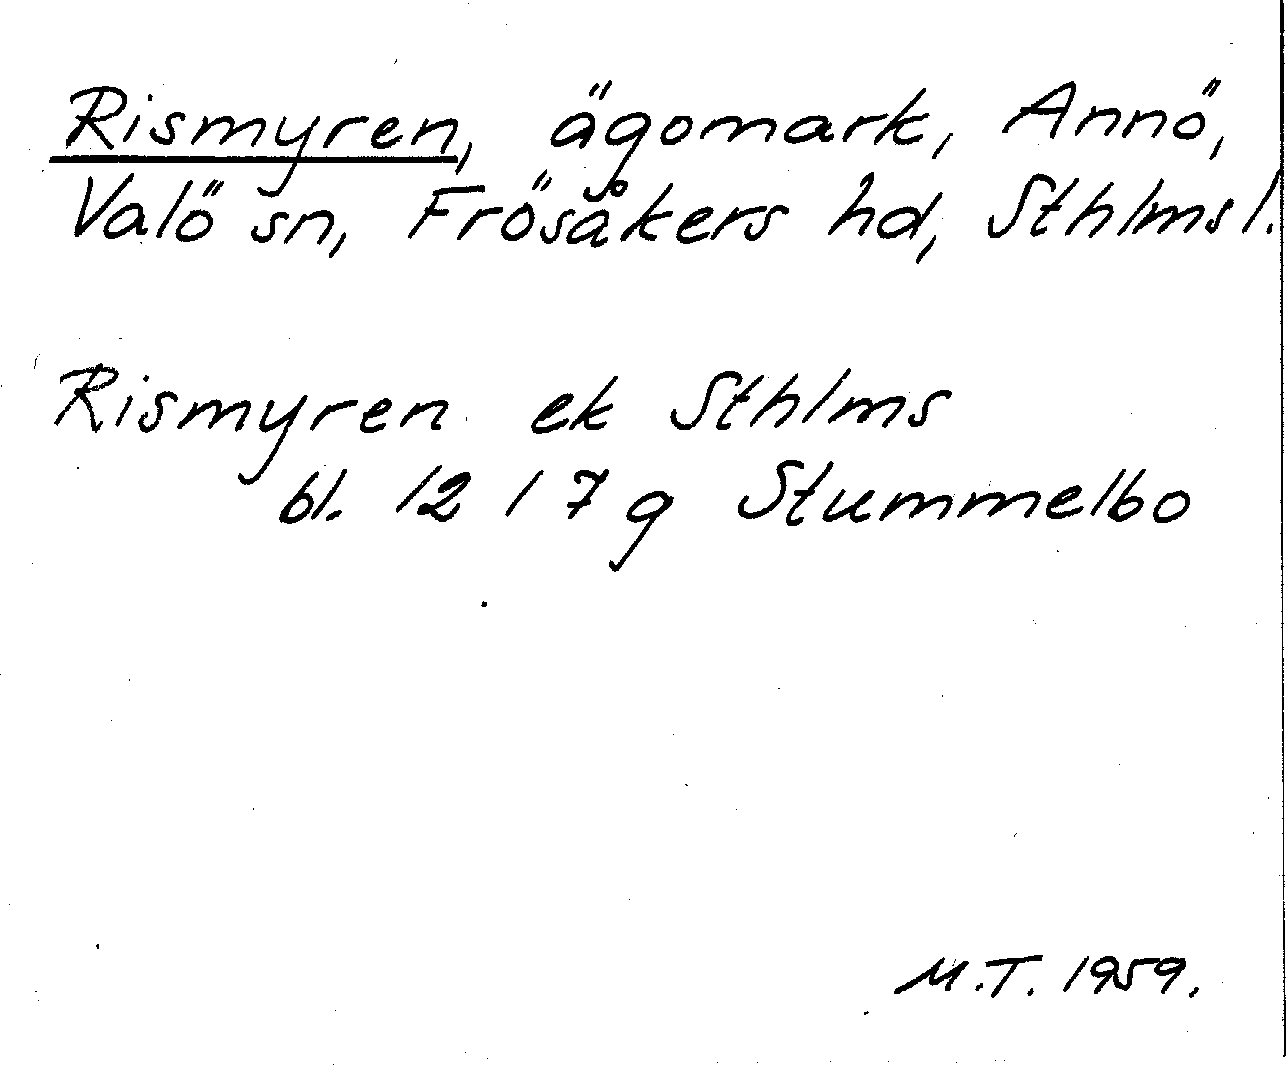 Rismyren, ägomark, Annö,
Valö sn, Frösåkers hd, Sthlms l.
Rismyren ek Sthlms
bl. 12 I 7 g Stummelbo
M.T. 1959.